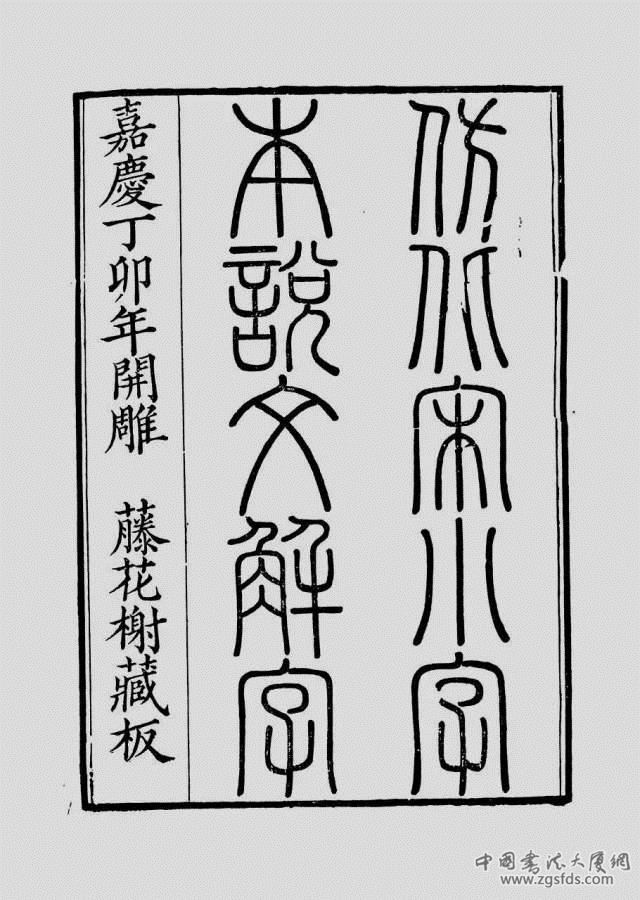 仿北宋小字
本說文解字
嘉慶丁卯年開雕　藤花榭藏板
中國书法大厦網
www.zgsfds.com